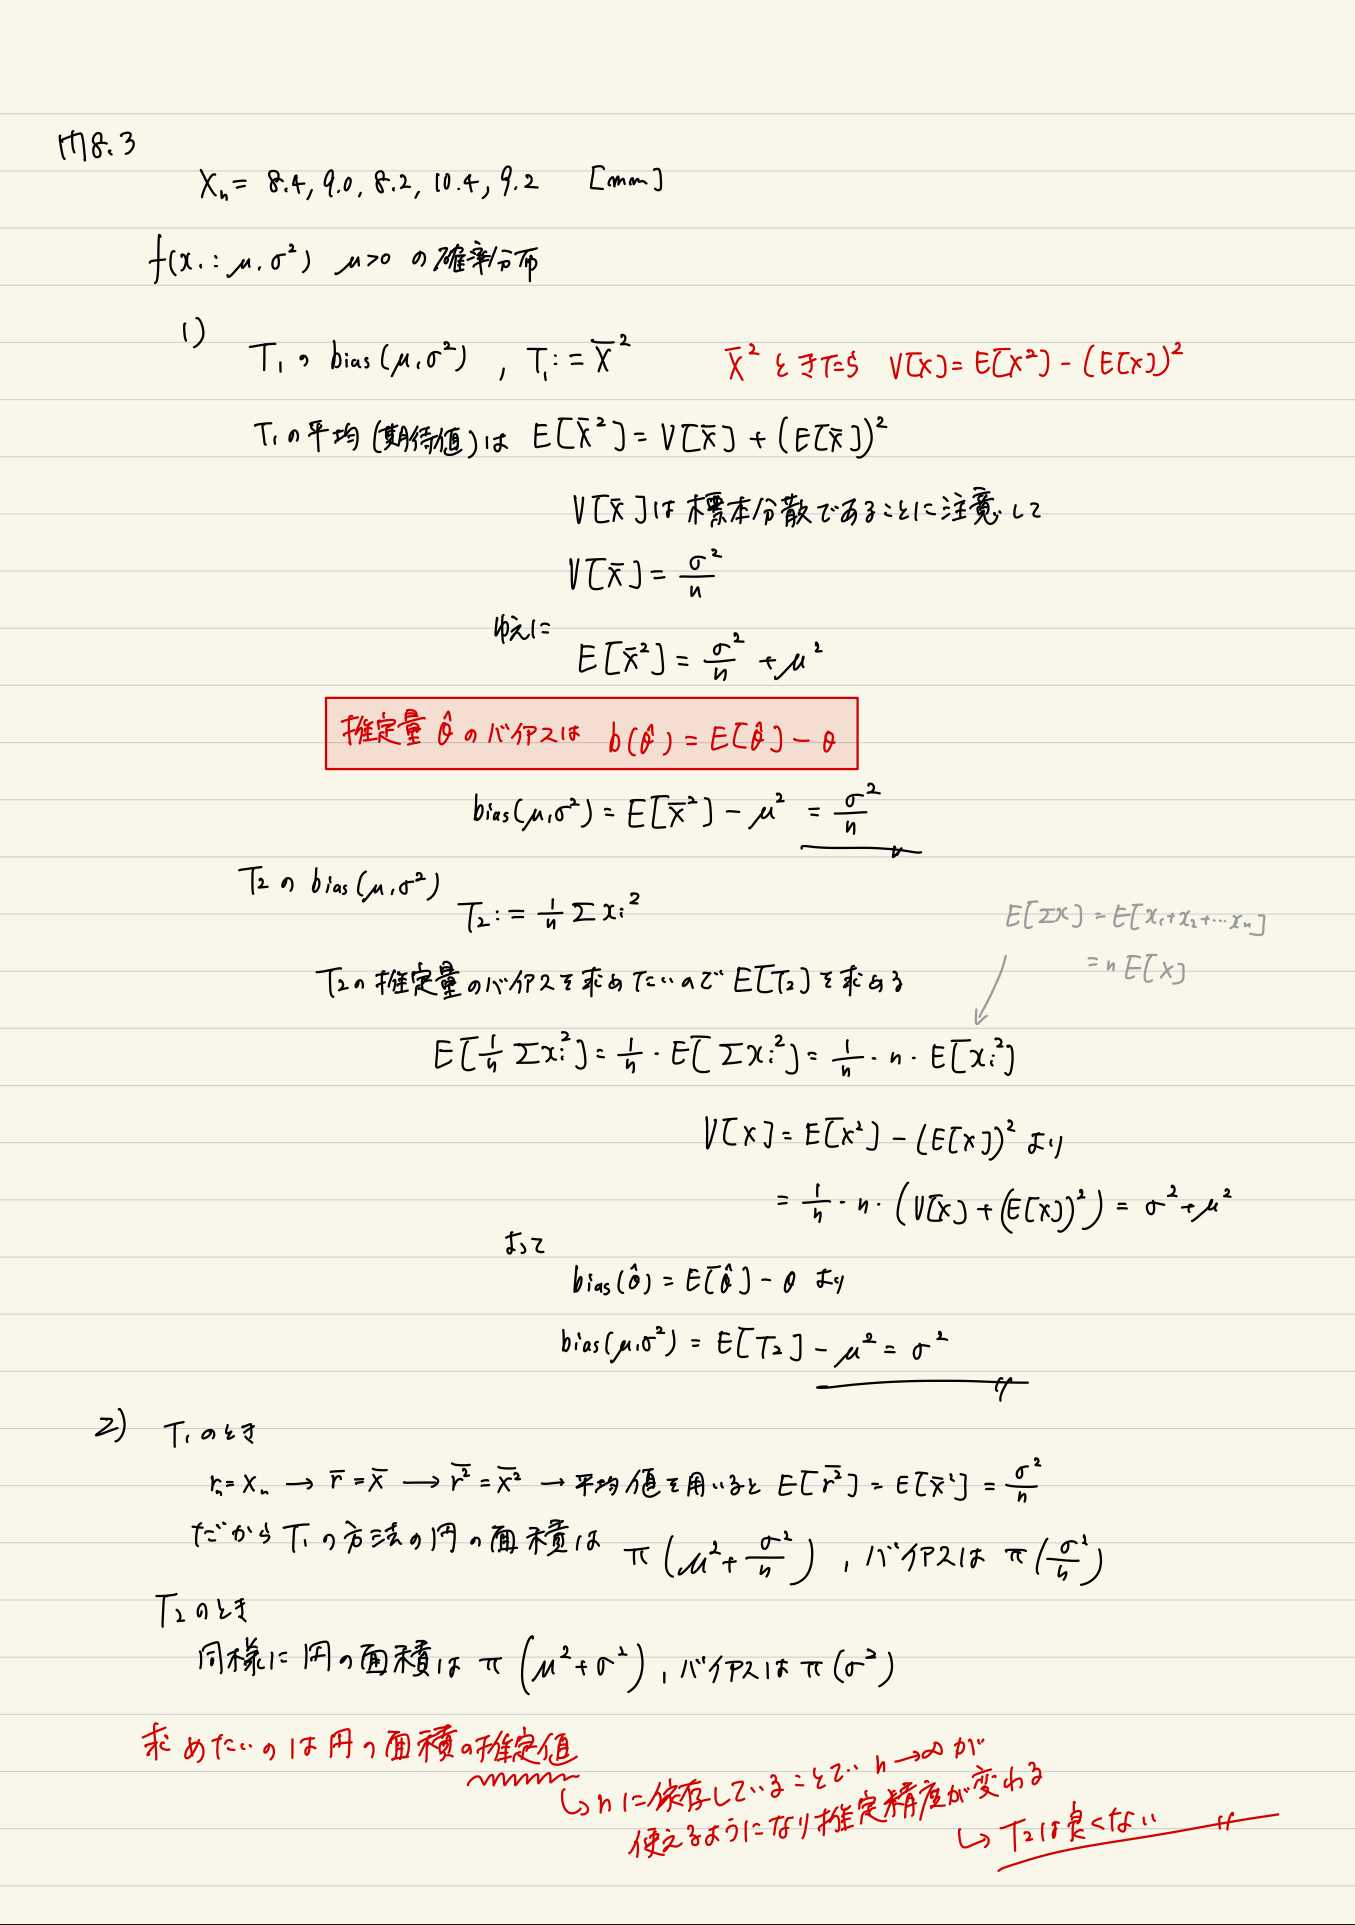 問8.3
Xn = 8.4, 9.0, 8.2, 10.4, 9.2 [mm]
f(x. : μ, σ²) μ>0 の確率分布
1)
T₁の bias(μ, σ²) , T₁ := X̄² X̄² ときたら V[X] = E[X²] - (E[X])²
T₁の平均(期待値)は E[X̄²] = V[X̄] + (E[X̄])²
V[X̄]は標本分散であることに注意して
V[X̄] = σ²/n
ゆえに
E[X̄²] = σ²/n + μ²
推定量 θ̂ のバイアスは b(θ̂) = E[θ̂] - θ
bias(μ, σ²) = E[X̄²] - μ² = σ²/n
T₂の bias(μ, σ²)
T₂ := 1/n Σxi²
E[Σx] = E[x₁+x₂+…xn]
= n E[x]
T₂の推定量のバイアスを求めたいので E[T₂]を求める
E[1/n Σxi²] = 1/n · E[Σxi²] = 1/n · n · E[xi²]
V[X] = E[X²] - (E[X])² より
= 1/n · n · (V[X] + (E[X])²) = σ² + μ²
よって
bias(θ̂) = E[θ̂] - θ より
bias(μ, σ²) = E[T₂] - μ² = σ²
2) T₁のとき
rn = Xn → r̄ = X̄ → r̄² = X̄² → 平均値を用いると E[r̄²] = E[X̄²] = σ²/n
だから T₁の方法の円の面積は π(μ² + σ²/n) , バイアスは π(σ²/n)
T₂のとき
同様に円の面積は π(μ² + σ²) , バイアスは π(σ²)
求めたいのは円の面積の推定値
↳ nに依存していることで、n→∞が
使えるようになり推定精度が変わる
↳ T₂は良くない